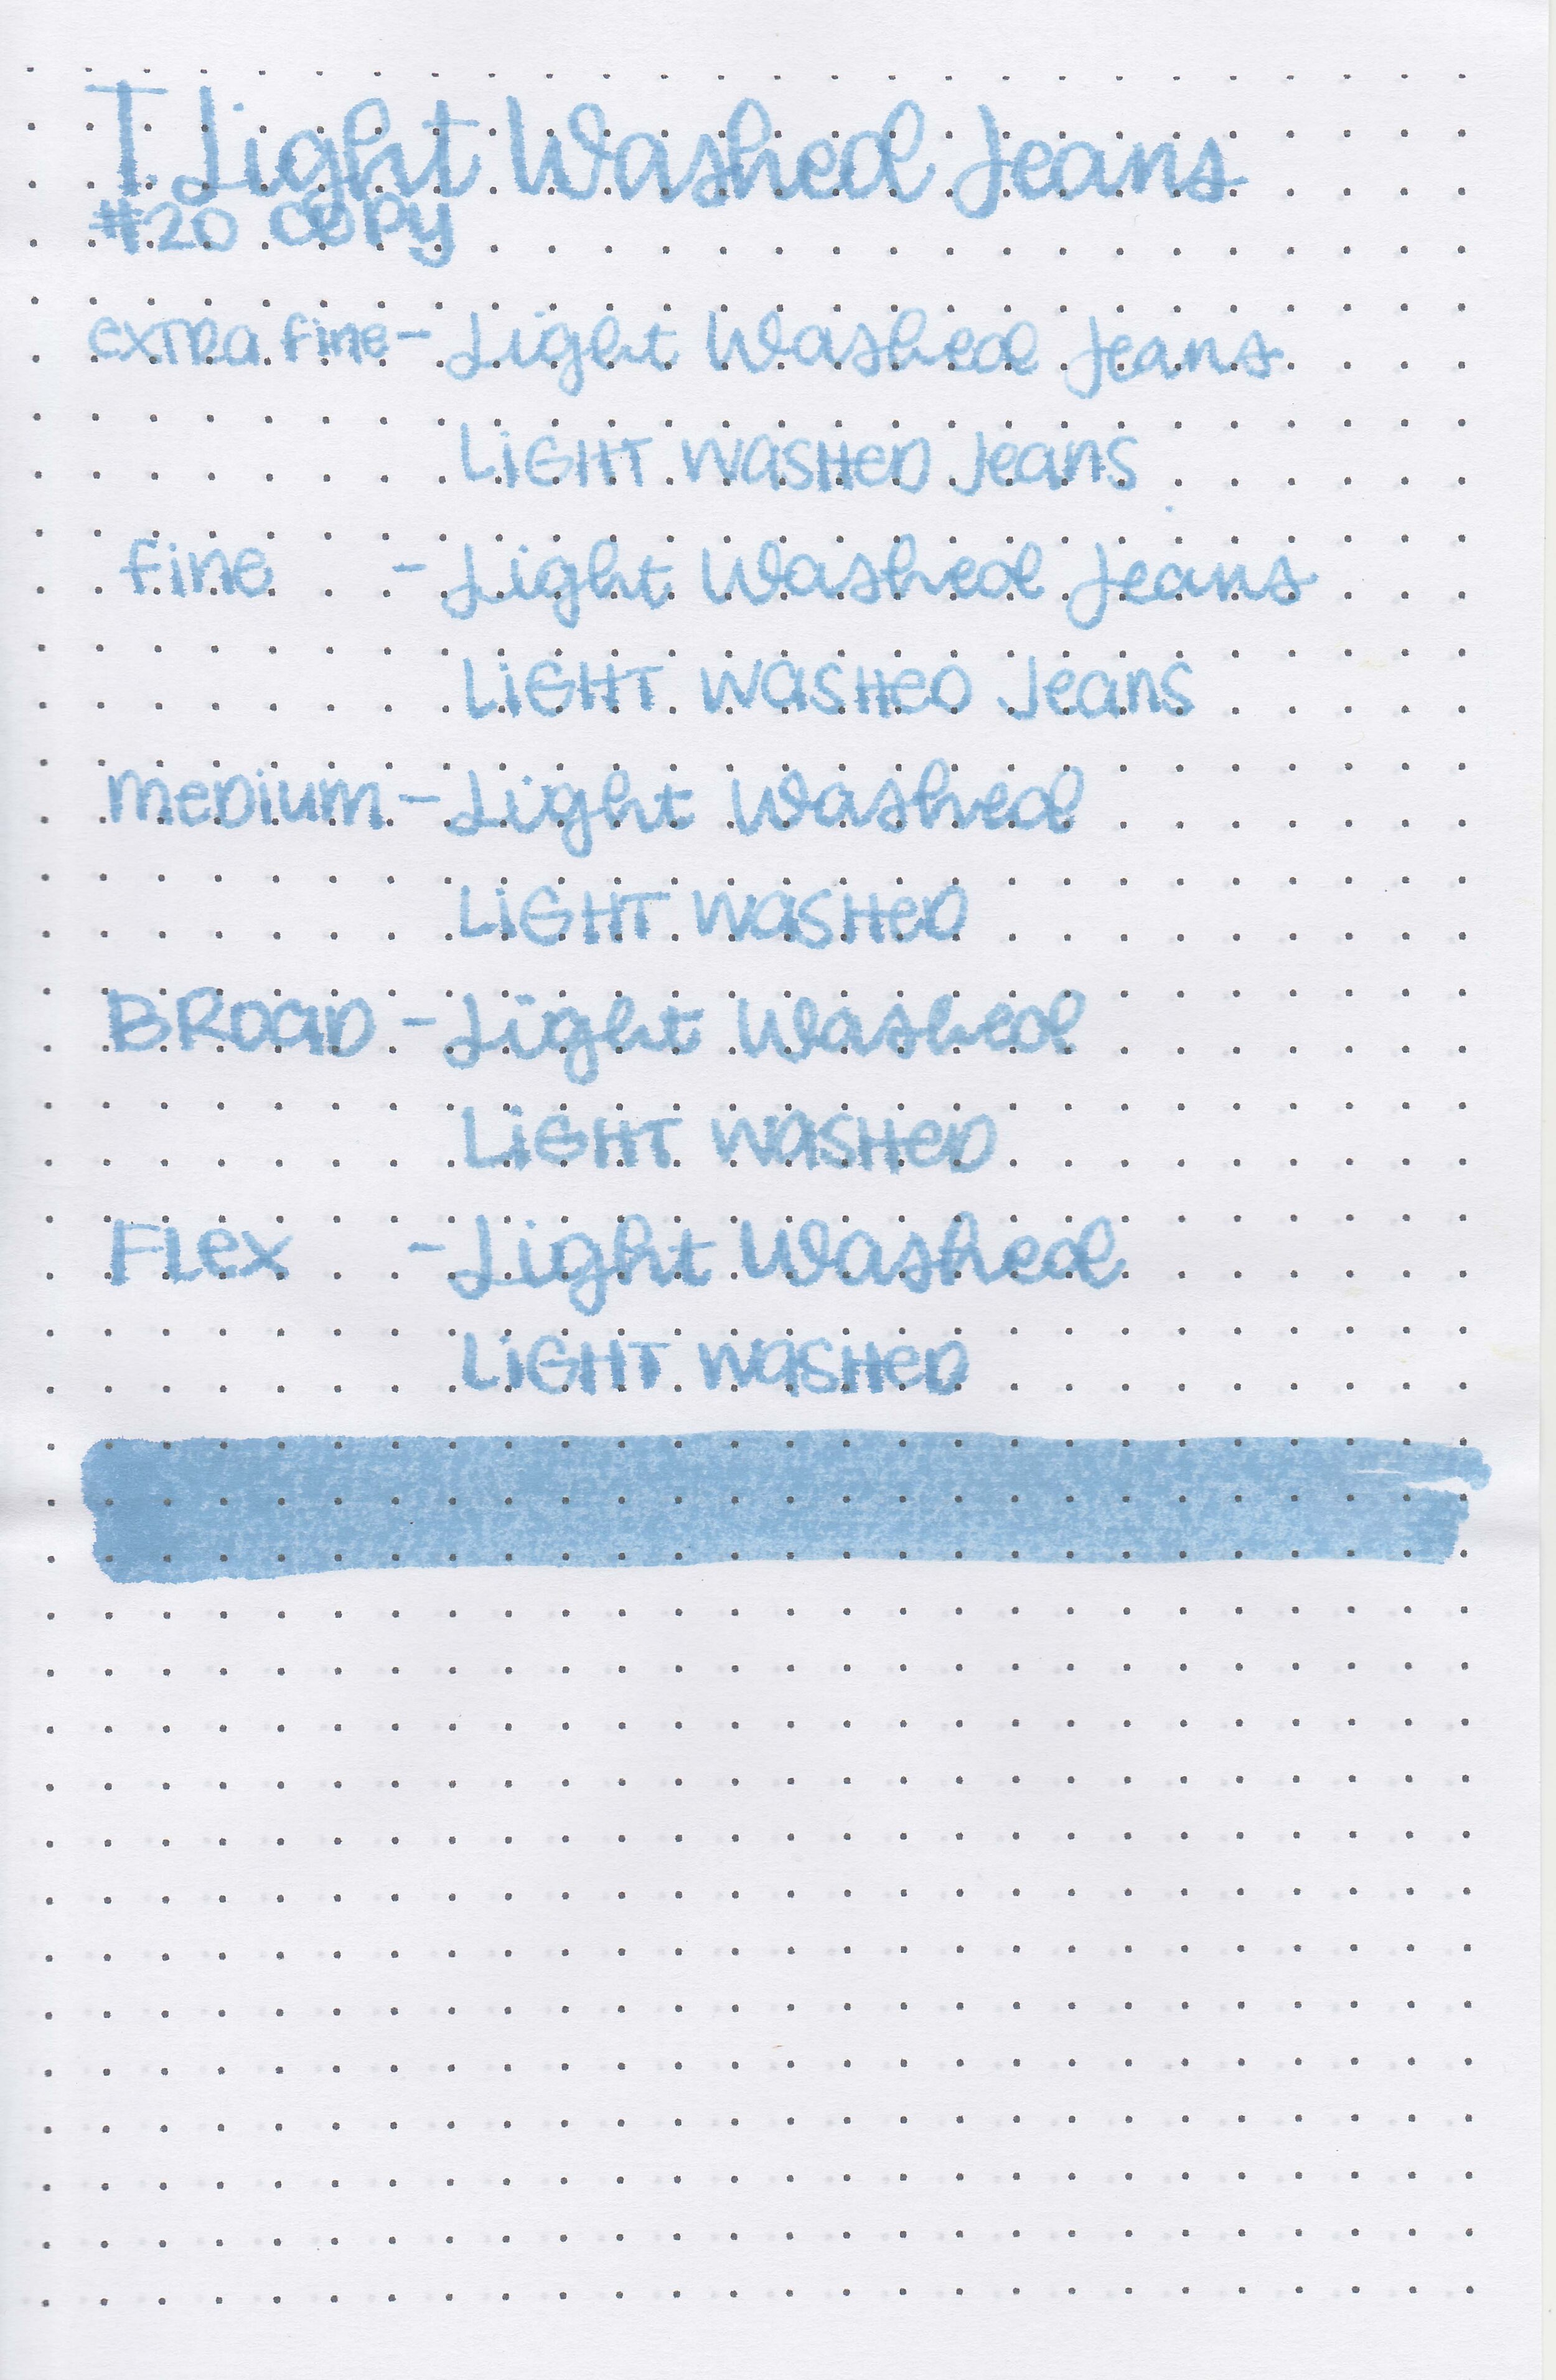 T. Light Washed Jeans
#20 COPY
extra fine - Light Washed Jeans
LiGHT WaSHeD Jeans
fine - Light Washed Jeans
LiGHT WaSHeD Jeans
meDium - Light Washed
LiGHT WaSHeD
BRoaD - Light Washed
LiGHT WaSHeD
FLex - Light Washed
LiGHT WaSHeD